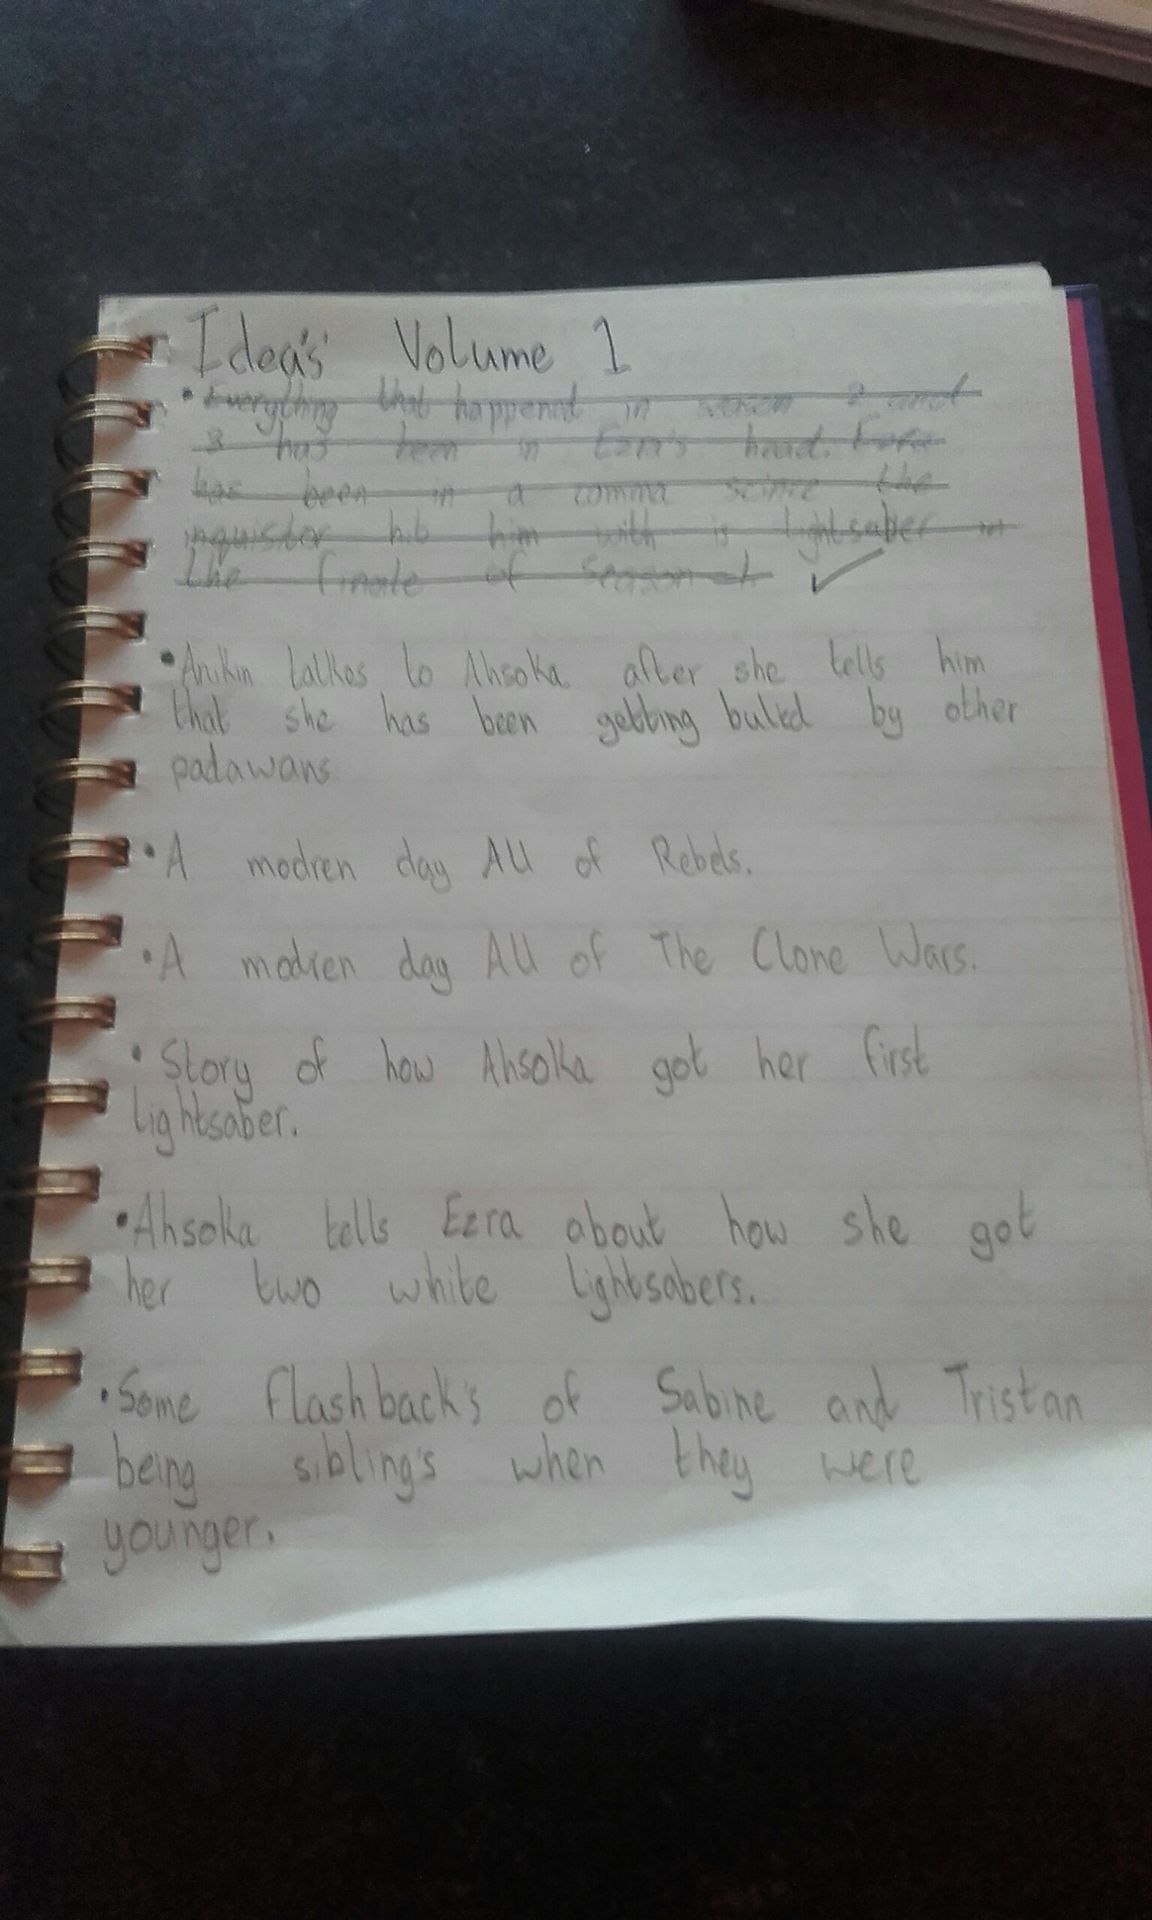 Idea's Volume 1
• Everything that happened in season 2 and
3 has been in Ezra's head. Ezra
has been in a comma scince the
inquistor hit him with is lightsaber in
the finale of Season 1.
• Anikin talkes to Ahsoka after she tells him
that she has been getting bulied by other
padawans
• A modren day AU of Rebels.
• A modren day AU of The Clone Wars.
• Story of how Ahsoka got her first
lightsaber.
• Ahsoka tells Ezra about how she got
her two white lightsabers.
• Some flashback's of Sabine and Tristan
being sibling's when they were
younger.